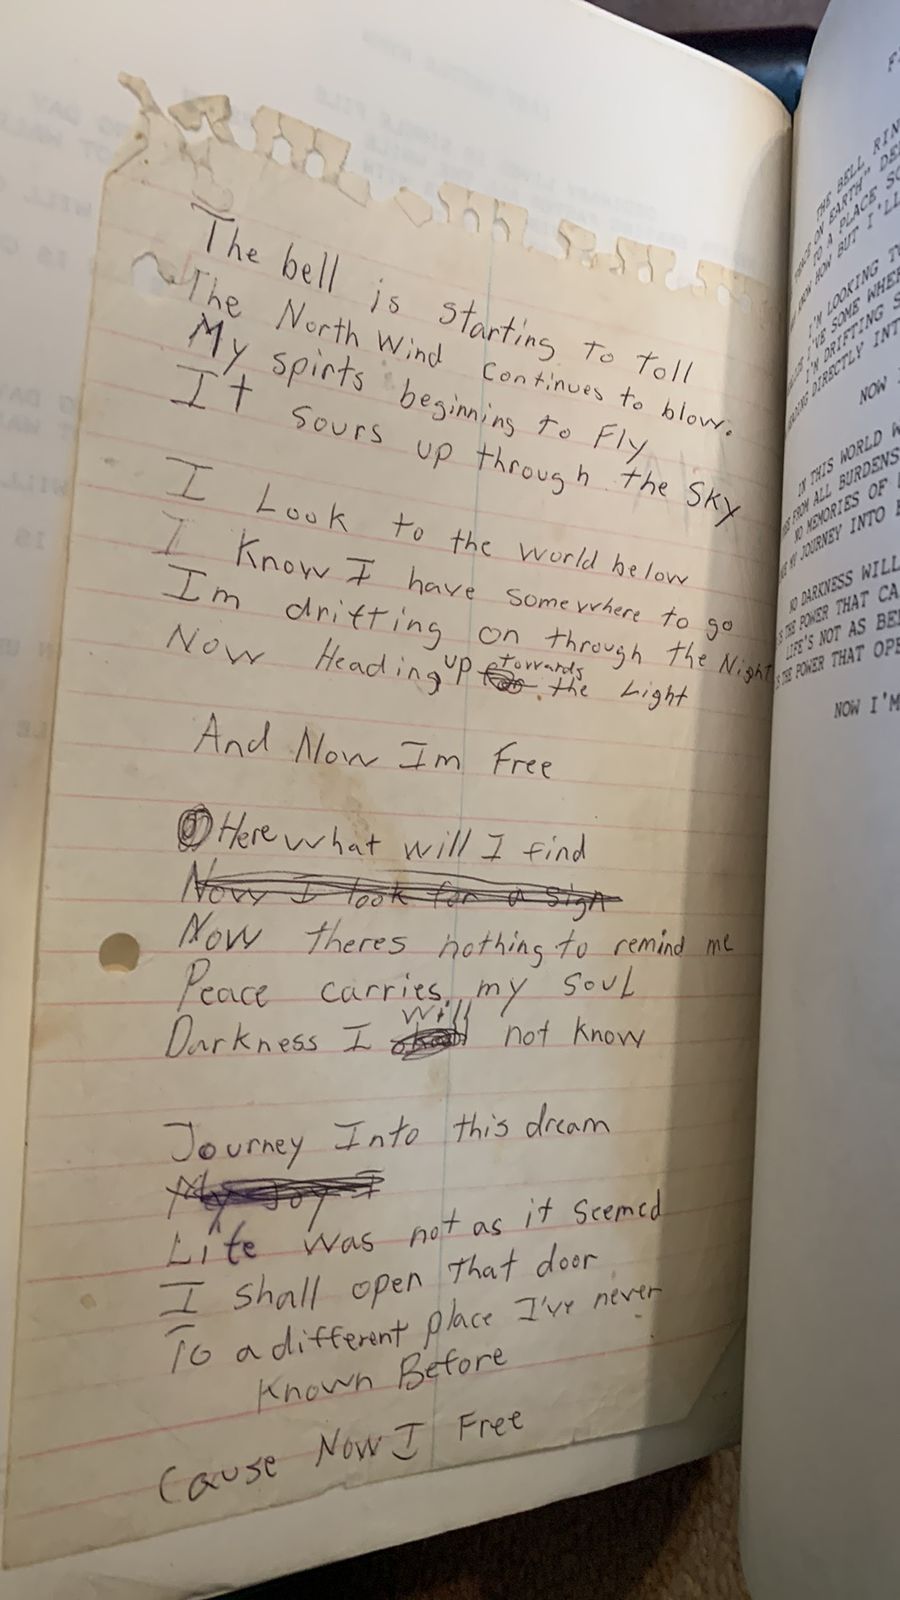 The bell is starting to toll
The North Wind Continues to blow.
My spirts beginning to Fly
It sours up through the Sky
I Look to the world below
I Know I have somewhere to go
Im drifting on through the Night
Now Heading up towards the Light
And Now Im Free
Here what will I find
Now I look for a sign
Now theres nothing to remind me
Peace carries my Soul
Darkness I will not know
Journey Into this dream
My Joy I
Life was not as it seemed
I shall open that door
To a different place I've never
Known Before
Cause Now I Free
F
THE BELL RIN
ON EARTH" DE
TO A PLACE SO
HOW BUT I'LL
I'M LOOKING TO
I'VE SOME WHER
I'M DRIFTING S
DIRECTLY INT
NOW I
IN THIS WORLD W
FROM ALL BURDENS
NO MEMORIES OF
MY JOURNEY INTO
NO DARKNESS WILL
THE POWER THAT CA
LIFE'S NOT AS BE
THE POWER THAT OPE
NOW I'M